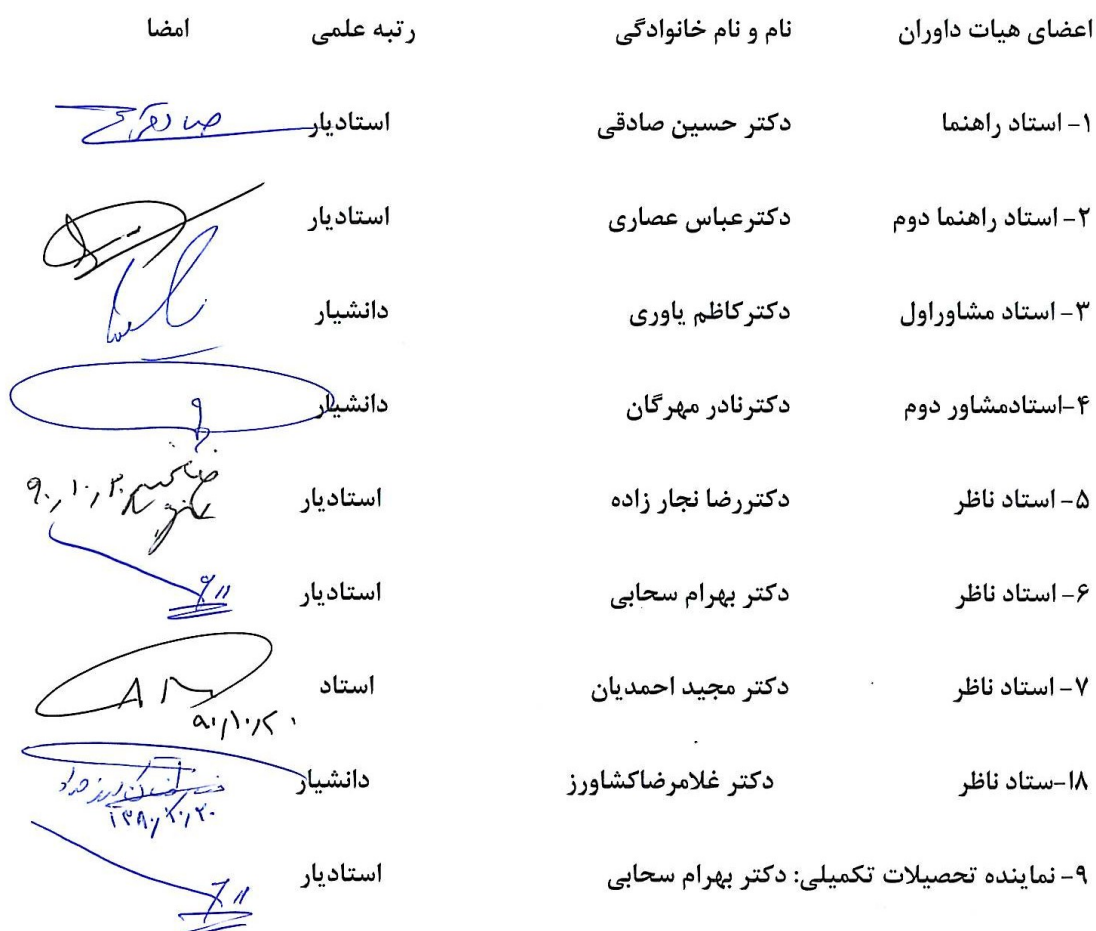 اعضای هیات داوران نام و نام خانوادگی رتبه علمی امضا
۱- استاد راهنما دکتر حسین صادقی استادیار
۲- استاد راهنما دوم دکترعباس عصاری استادیار
۳- استاد مشاوراول دکترکاظم یاوری دانشیار
۴-استادمشاور دوم دکترنادر مهرگان دانشیار
۵- استاد ناظر دکتررضا نجار زاده استادیار ۹۰,۱۰,۲۰
۶- استاد ناظر دکتر بهرام سحابی استادیار
۷- استاد ناظر دکتر مجید احمدیان استاد
۹۰,۱۰,۲۰
۱۸-ستاد ناظر دکتر غلامرضاکشاورز دانشیار
۹- نماینده تحصیلات تکمیلی: دکتر بهرام سحابی استادیار